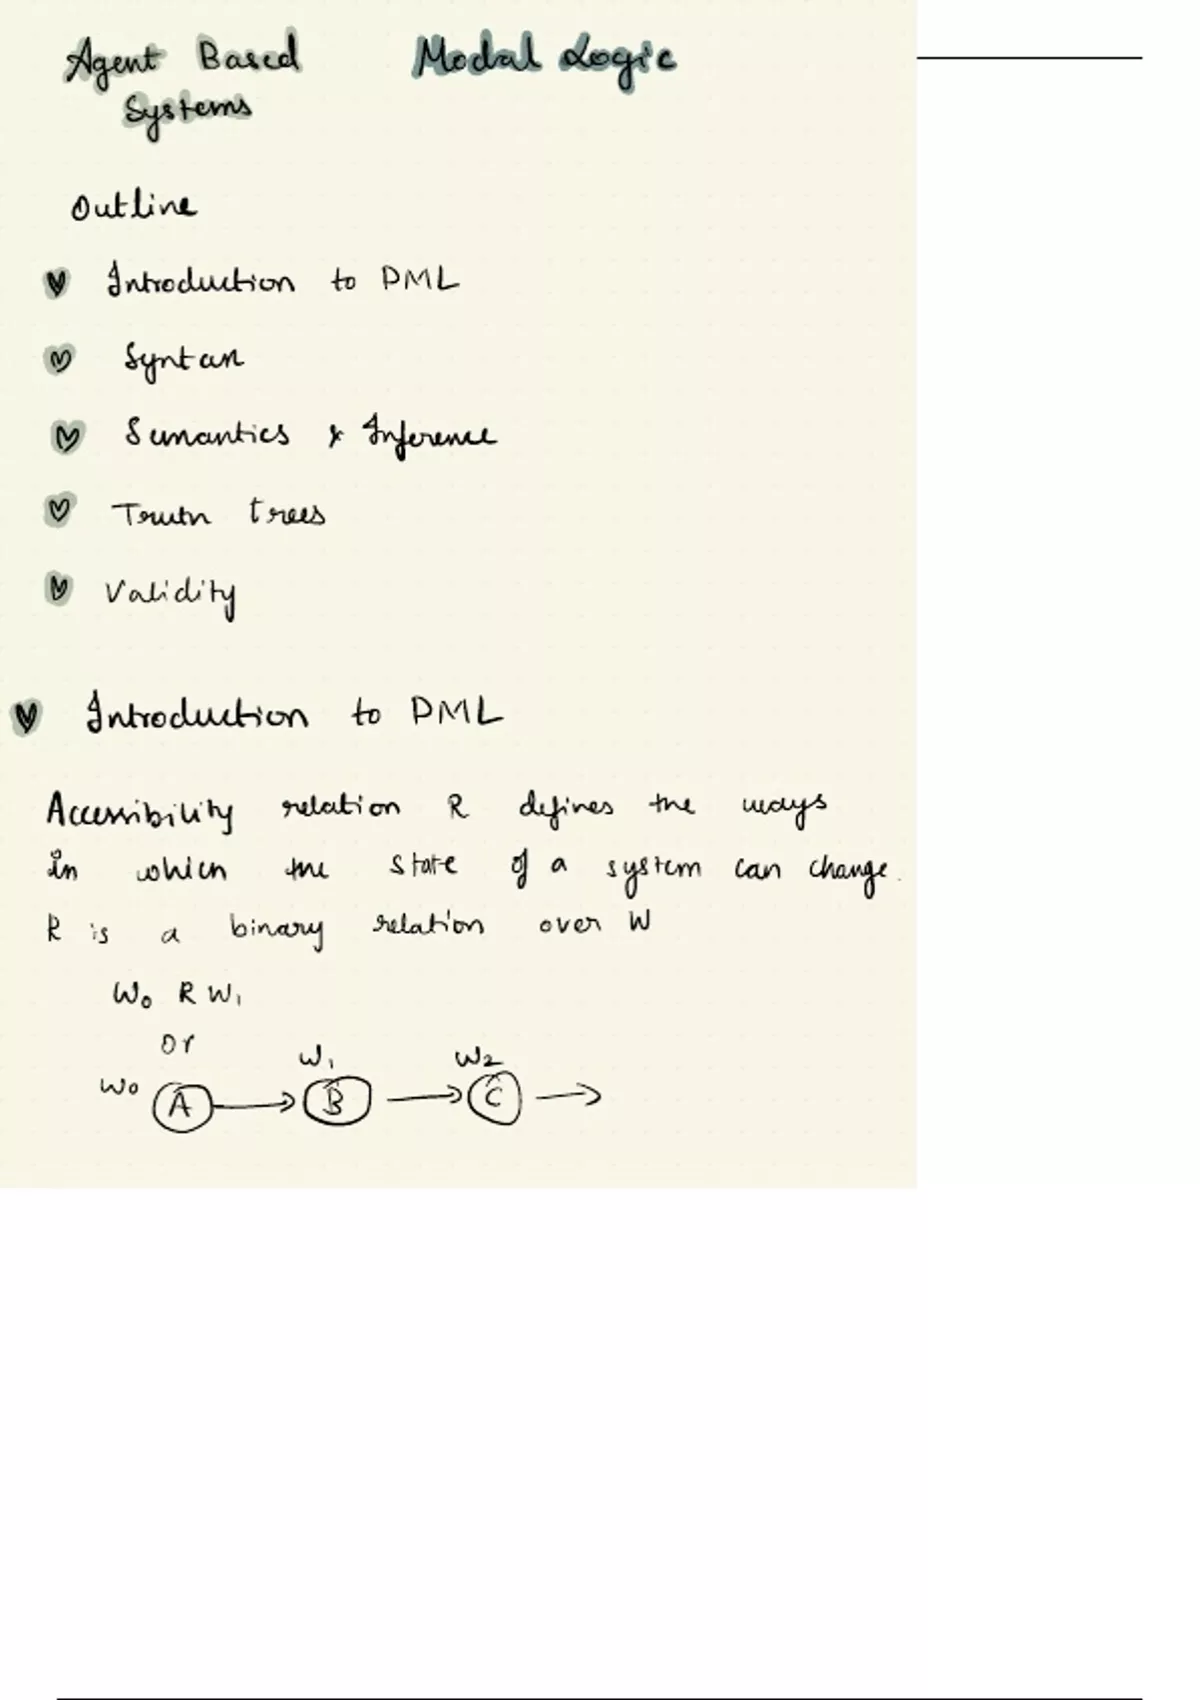 Agent Based Modal Logic
Systems
Outline
Introduction to PML
Syntax
Semantics & Inference
Truth trees
Validity
Introduction to PML
Accessibility relation R defines the ways
in which the state of a system can change.
R is a binary relation over W
W₀ R W₁
or
W₀ A W₁ B W₂ C